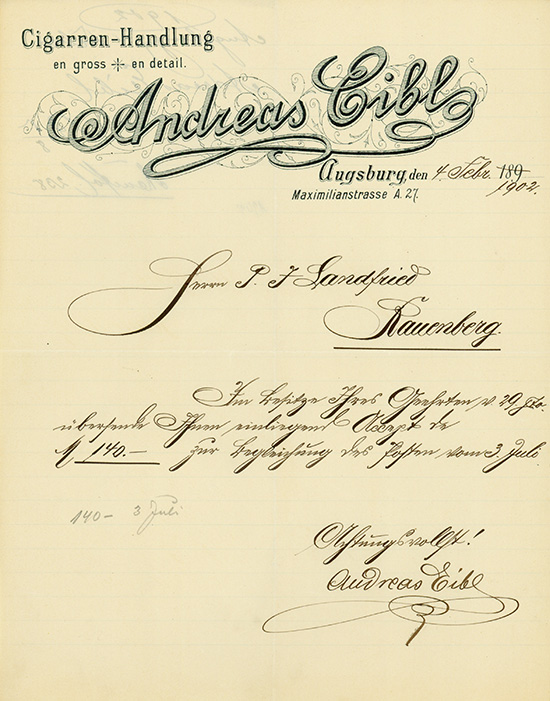 Cigarren-Handlung
en gross + en detail.
Andreas Eibl
Augsburg, den 4. Febr. 189
1902.
Maximilianstrasse A. 27.
Herrn P. J. Landfried
Rauenberg.
Im Besitze Ihres Geehrten v. 29.
übersende Ihnen einliegend Accept de
M 140.— zur Begleichung des Posten vom 3. Juli
140— 3 Juli
Achtungsvollst!
Andreas Eibl